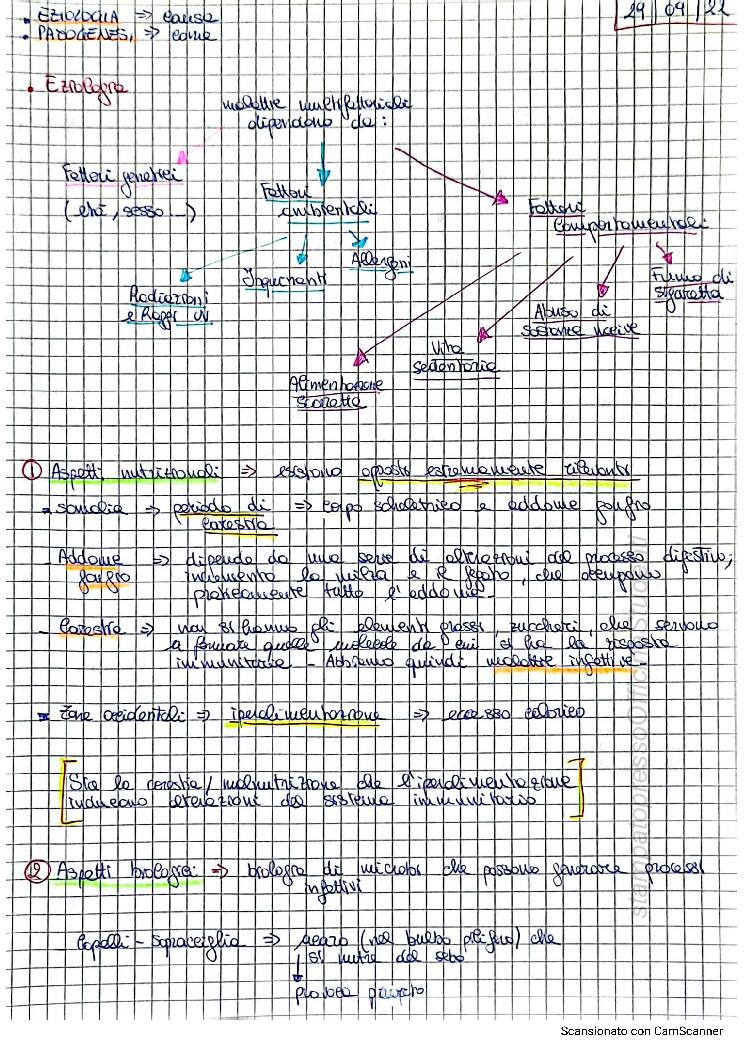 • EZIOLOGIA => cause
• PATOGENESI => come
29/09/22
• Eziologia
malattie multifattoriali
dipendono da:
Fattori genetici
(età, sesso...)
Fattori
ambientali
Fattori
comportamentali
Radiazioni
e Raggi UV
Inquinanti
Allergeni
Alimentazione
scorretta
Vita
sedentaria
Abuso di
sostanze nocive
Fumo di
sigaretta
① Aspetti nutrizionali => esistono opposti estremamente rilevanti
- somalia => periodo di => corpo scheletrico e addome gonfio
carestia
- Addome => dipende da una serie di alterazioni del processo digestivo;
gonfio incremento la milza e il fegato, che occupano
praticamente tutto l'addome -
- Carestia => non si hanno gli elementi grassi, zuccheri, che servono
a formare quelle molecole da cui si ha la risposta
immunitaria - Abbiamo quindi malattie infettive -
- Zone occidentali => iperalimentazione => eccesso calorico
[Sia la carestia/malnutrizione che l'iperalimentazione
inducono alterazioni del sistema immunitario]
② Aspetti biologici => biologia di microbi che possono generare processi
infettivi
Capelli - Sopracciglia => acaro (nel bulbo pilifero) che
si nutre del sebo
provoca prurito
stampatopressoOfficinaStudenti
Scansionato con CamScanner